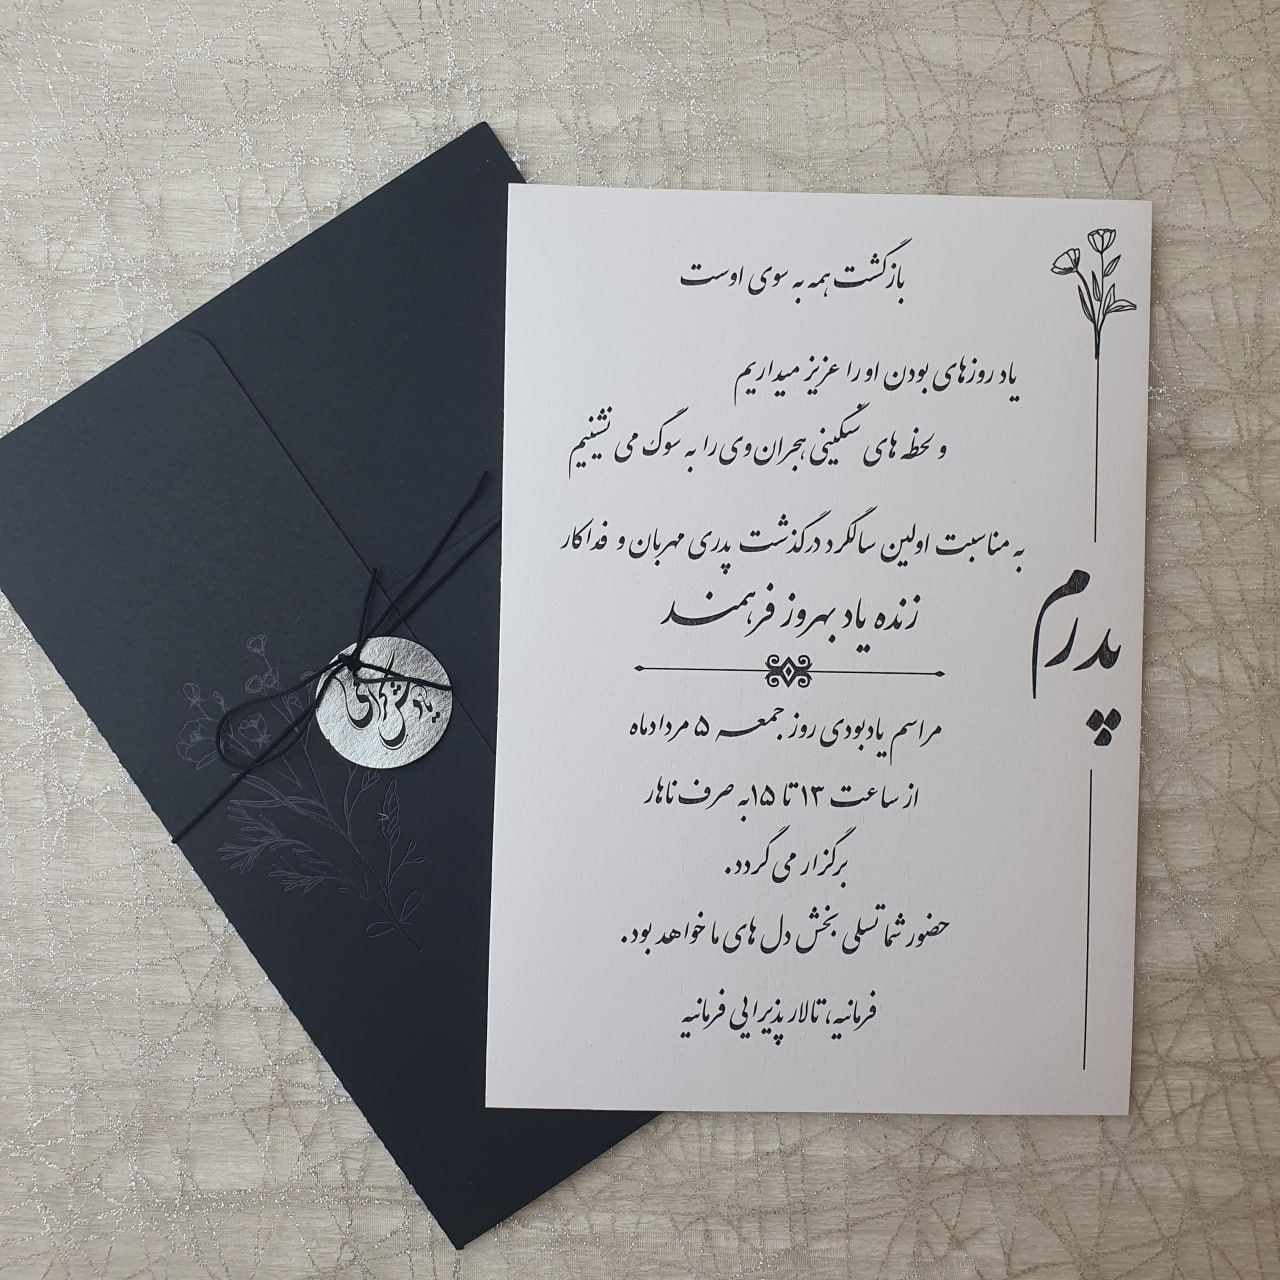 بازگشت همه به سوی اوست
یاد روزهای بودن او را عزیز میداریم
و لحظه های سنگینی هجران وی را به سوگ می نشینیم
به مناسبت اولین سالگرد درگذشت پدری مهربان و فداکار
زنده یاد بهروز فرهمند
مراسم یادبودی روز جمعه ۵ مردادماه
از ساعت ۱۳ تا ۱۵ به صرف ناهار
برگزار می گردد.
حضور شما تسلی بخش دل های ما خواهد بود.
فرمانیه، تالار پذیرایی فرمانیه
پدرم
یادش گرامی